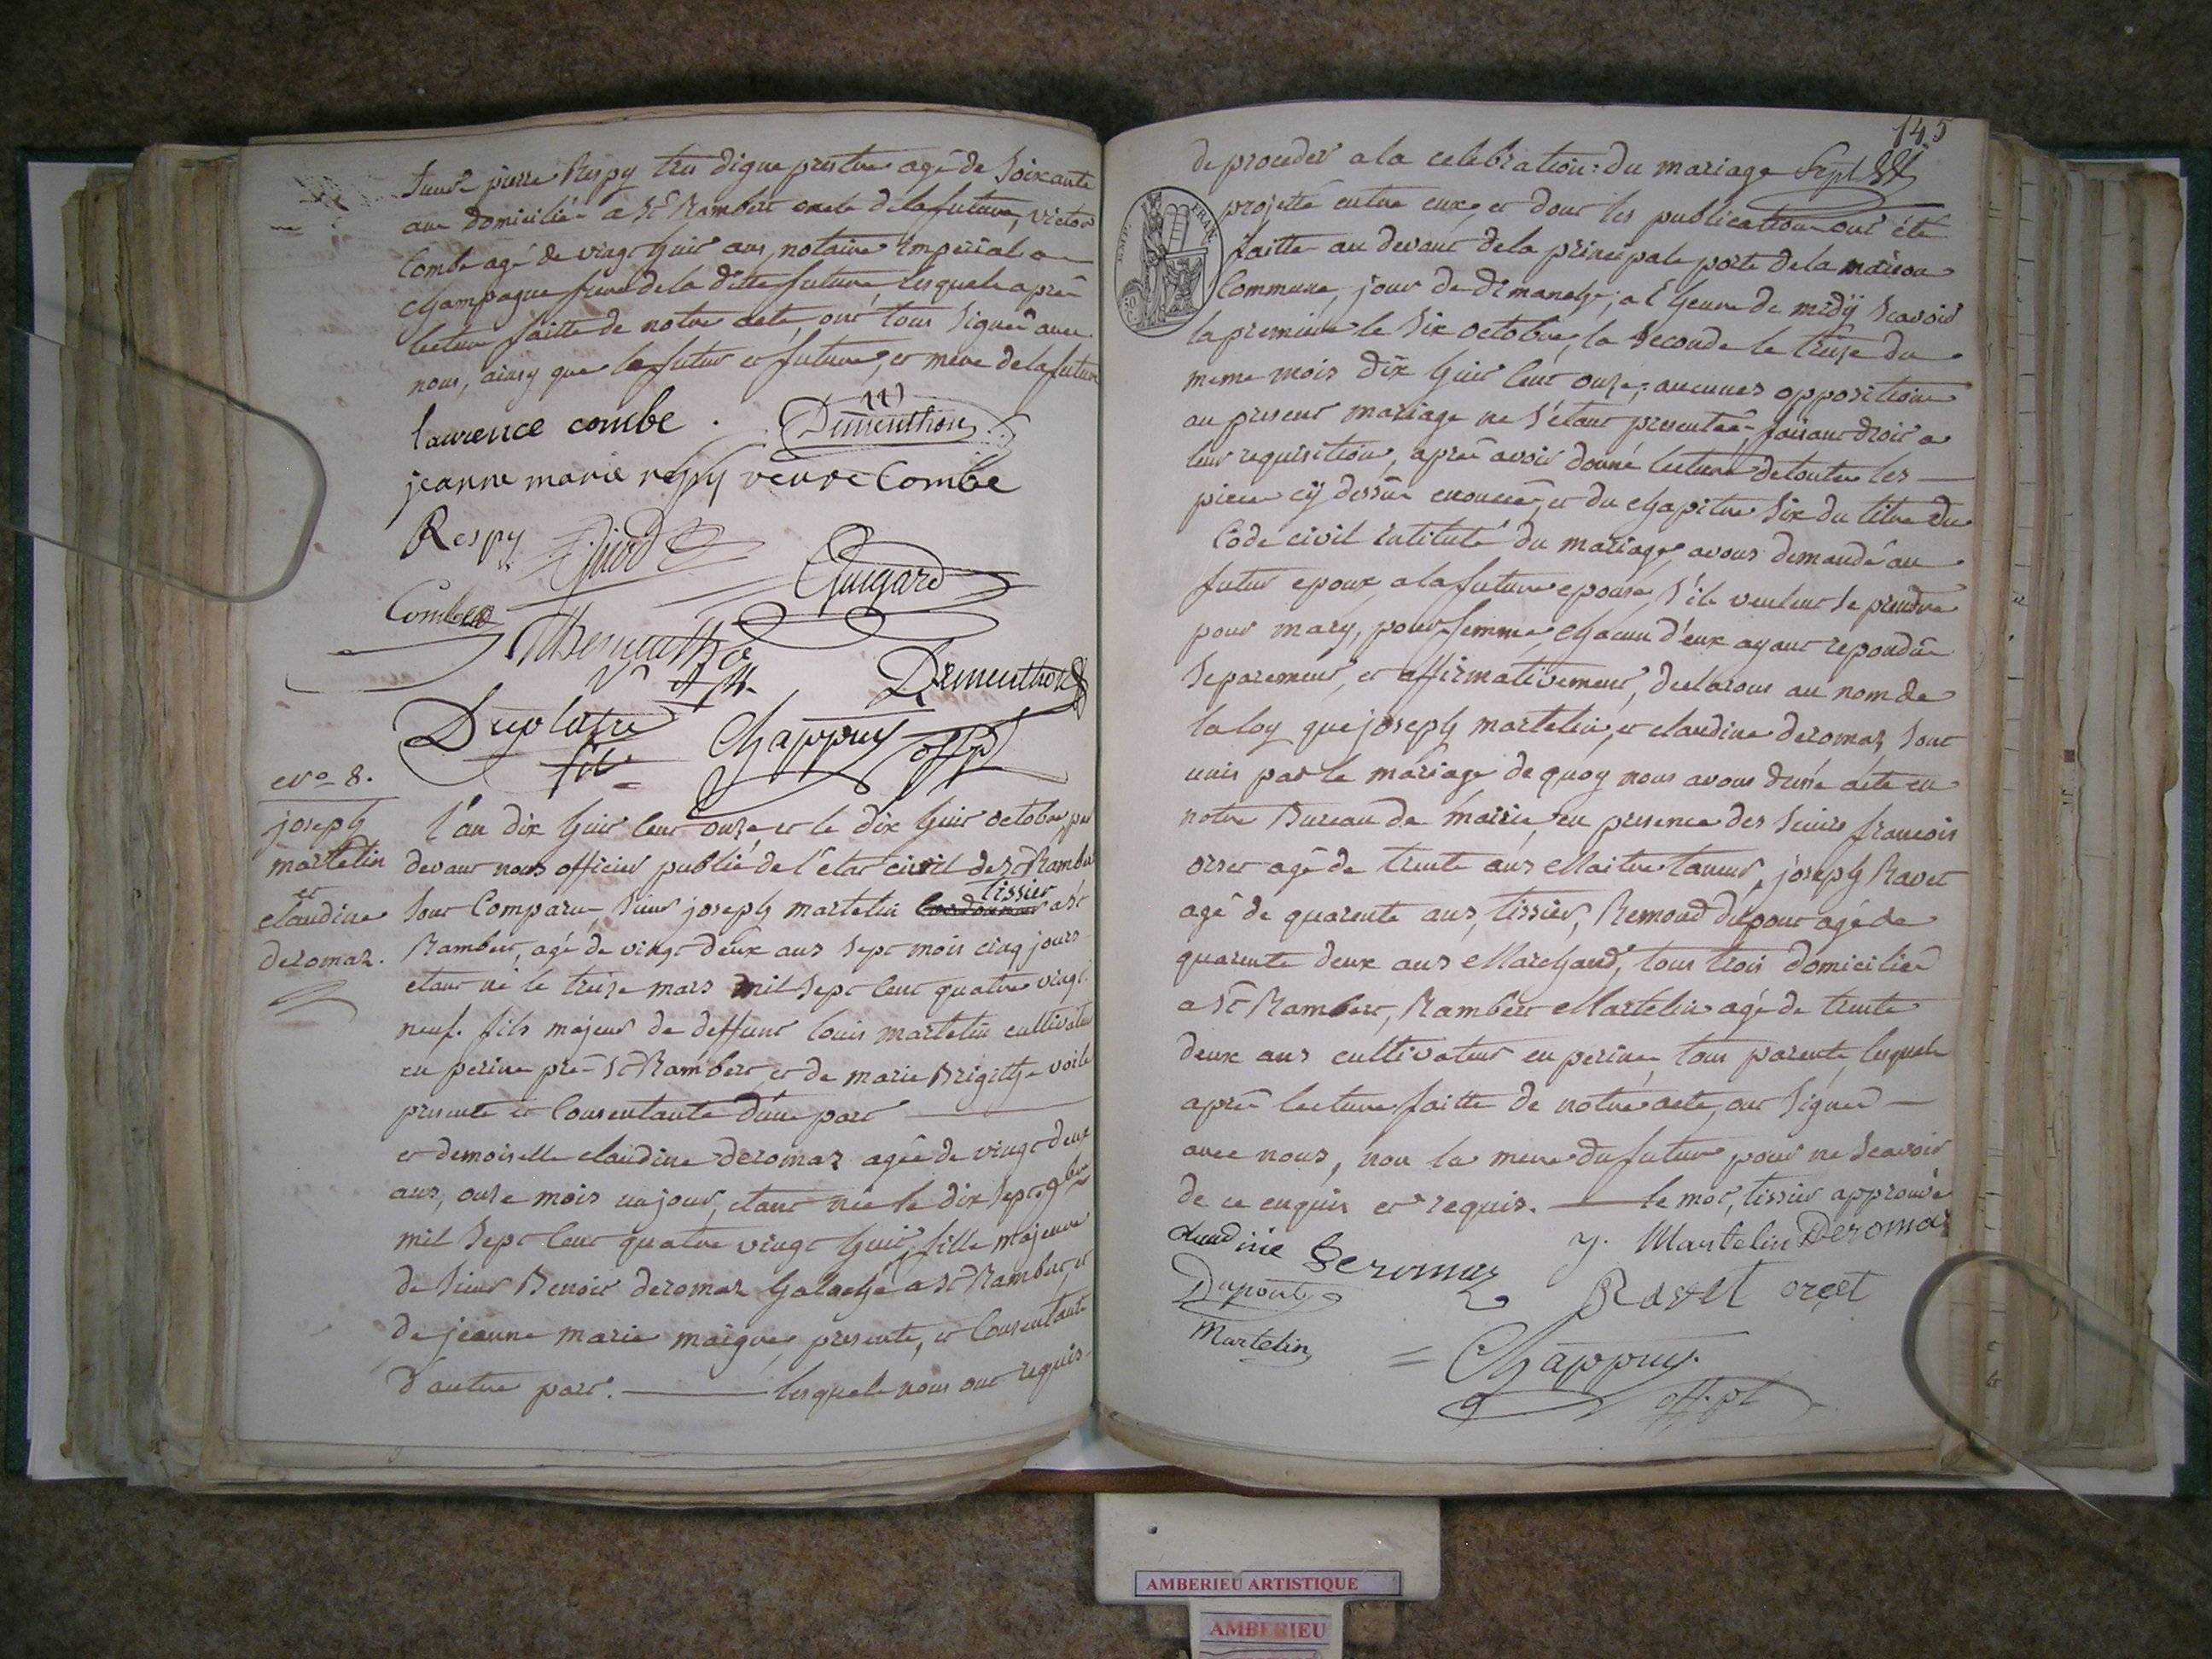 pierre Respy tres digne prestre agé de soixante
ans domicilié a St Rambert oncle de la future, victor
Combe agé de vingt huit ans, notaire imperial a
champagne frere de la ditte future lesquels aprés
lecture faitte de notre acte, ont tous signés avec
nous, ainsy que le futur et future, et mere de la future
laurence combe . Dimenthon
jeanne marie respy veuve Combe
Respy
Guigard
Combe
Dementhon
Duplatre
fils
Chappuy off pl
No 8.
joseph
martelin
et
claudine
deromas.
l'an dix huit cent onze, et le dix huit octobre, par
devant nous officier public de l'état civil de St Rambert
tissier
sont comparu, sieur joseph martelin cordonnier a St
Rambert, agé de vingt deux ans sept mois cinq jours
etant né le treize mars mil sept cent quatre vingt
neuf. fils majeur de deffunt louis martelin cultivateur
en perine pré St Rambert, et de marie Brigitte voile
presente et consentante d'une part
et demoiselle claudine deromas agée de vingt deux
ans, onze mois un jour, etant née le dix sept 9bre
mil sept cent quatre vingt huit, fille majeure
de sieur Benoit deromas galoche a St Rambert, et
de jeanne marie maigre, presente, et consentante
d'autre part. lesquels nous ont requis
145
de proceder a la celebration du mariage
projetté entre eux, et dont les publication ont été
faitte au devant de la principale porte de la maison
Commune, jour de dimanche, a l'heure de midÿ scavoir
la premiere le six octobre, la seconde le treize du
meme mois dix huit cent onze; aucunes opposition
au present mariage ne s'étant presentée, faisant droit a
leur requisition, aprés avoir donné lecture de toutes les
piece cÿ dessus enoncée, et du chapitre six du titre du
Code civil intitulé du mariage, avons demandé au
futur epoux, a la future epouse, s'ils veulent se prendre
pour mary, pour femme, chacun d'eux ayant repondu
separement, et affirmativement, declarons au nom de
la loy que joseph martelin, et claudine deromas, sont
unis par le mariage de quoy nous avons dressé acte en
notre Bureau de mairie, en presence des sieurs francois
orset agé de trente ans Maitre taneur, joseph Ravet
agé de quarente ans, tissier, Remond dupont agé de
quarente deux ans Marchand, tous trois domicilier
a St Rambert, Rambert Martelin agé de trente
deux ans cultivateur en perine, tous parents, lesquels
aprés lecture faitte de notre acte, ont signés
avec nous, non la mere du futur pour ne scavoir
de ce enquis et requis. le mot, tissier approuvé
claudine Deromas
J. Martelin Deromas
Dupont
Ravet orset
Martelin
Chappuy
off. pl
IMP. FRAN.
AMBERIEU ARTISTIQUE
AMBERIEU